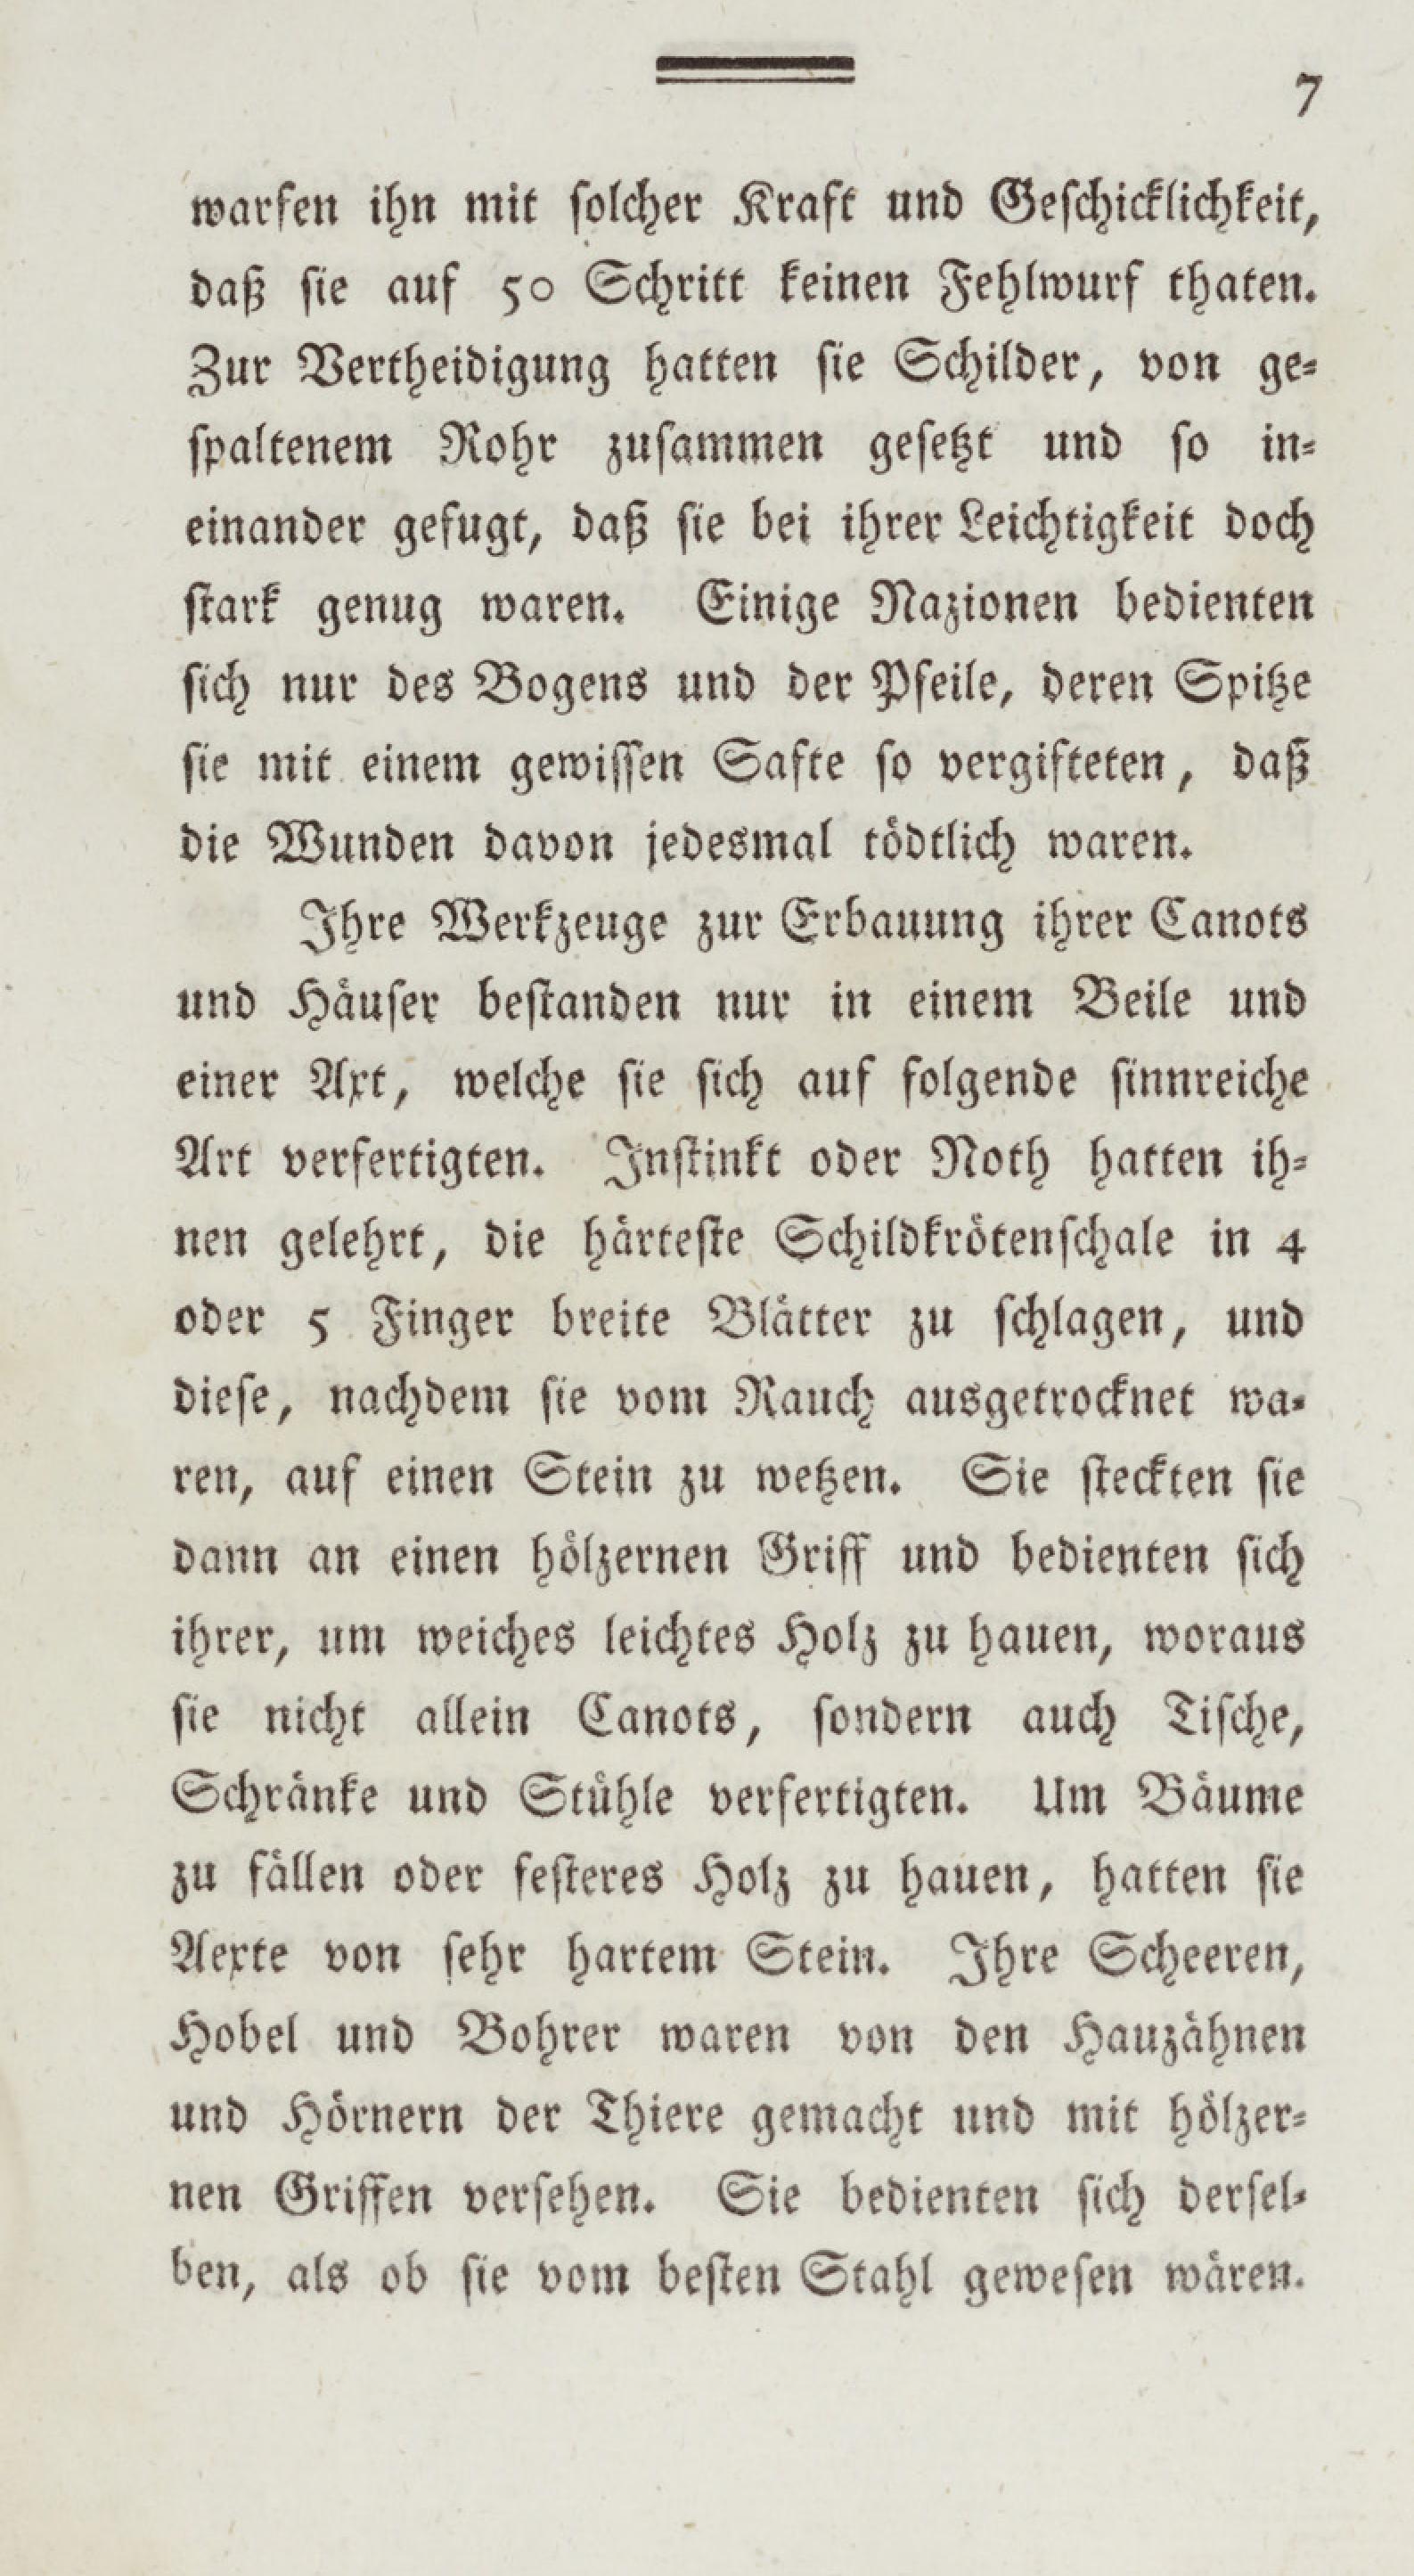 7
warfen ihn mit solcher Kraft und Geschicklichkeit,
daß sie auf 50 Schritt keinen Fehlwurf thaten.
Zur Vertheidigung hatten sie Schilder, von ge-
spaltenem Rohr zusammen gesetzt und so in-
einander gefugt, daß sie bei ihrer Leichtigkeit doch
stark genug waren. Einige Nazionen bedienten
sich nur des Bogens und der Pfeile, deren Spitze
sie mit einem gewissen Safte so vergifteten, daß
die Wunden davon jedesmal tödtlich waren.
Ihre Werkzeuge zur Erbauung ihrer Canots
und Häuser bestanden nur in einem Beile und
einer Axt, welche sie sich auf folgende sinnreiche
Art verfertigten. Instinkt oder Noth hatten ih-
nen gelehrt, die härteste Schildkrötenschale in 4
oder 5 Finger breite Blätter zu schlagen, und
diese, nachdem sie vom Rauch ausgetrocknet wa-
ren, auf einen Stein zu wetzen. Sie steckten sie
dann an einen hölzernen Griff und bedienten sich
ihrer, um weiches leichtes Holz zu hauen, woraus
sie nicht allein Canots, sondern auch Tische,
Schränke und Stühle verfertigten. Um Bäume
zu fällen oder festeres Holz zu hauen, hatten sie
Aexte von sehr hartem Stein. Ihre Scheeren,
Hobel und Bohrer waren von den Hauzähnen
und Hörnern der Thiere gemacht und mit hölzer-
nen Griffen versehen. Sie bedienten sich dersel-
ben, als ob sie vom besten Stahl gewesen wären.